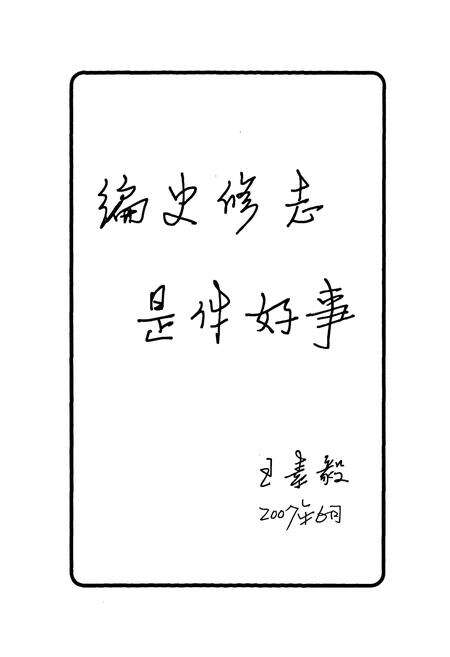 编史修志
是件好事
王素毅
2007年6月